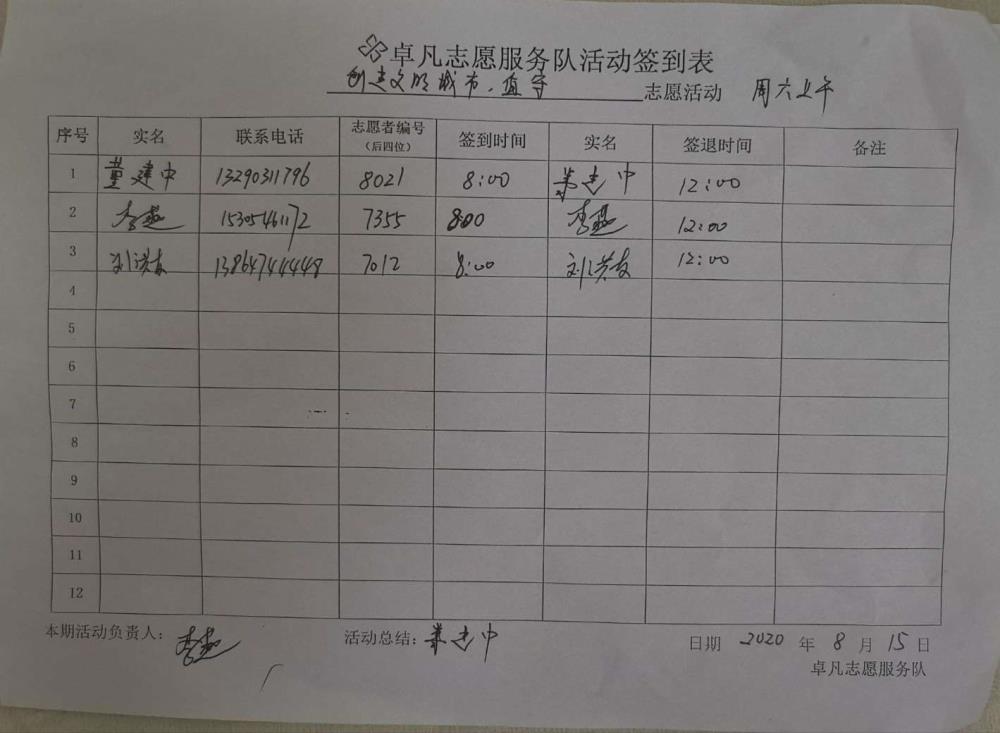 卓凡志愿服务队活动签到表
创建文明城市、值守 志愿活动 周六上午
序号 实名 联系电话 志愿者编号（后四位） 签到时间 实名 签退时间 备注
1 董建中 13290311796 8021 8:00 董建中 12:00
2 李燕 15305461172 7355 8:00 李燕 12:00
3 刘洪友 13864744448 7012 8:00 刘洪友 12:00
4
5
6
7
8
9
10
11
12
本期活动负责人：李燕 活动总结：董建中 日期 2020 年 8 月 15 日
卓凡志愿服务队